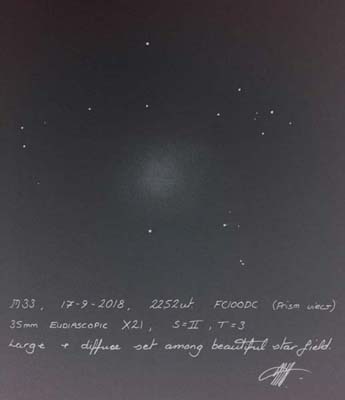 M33, 17-9-2018, 2252ut FC100DC (Prism view)
35mm EUDIASCOPIC X21, S=II, T=3
Large + diffuse set among beautiful star field.